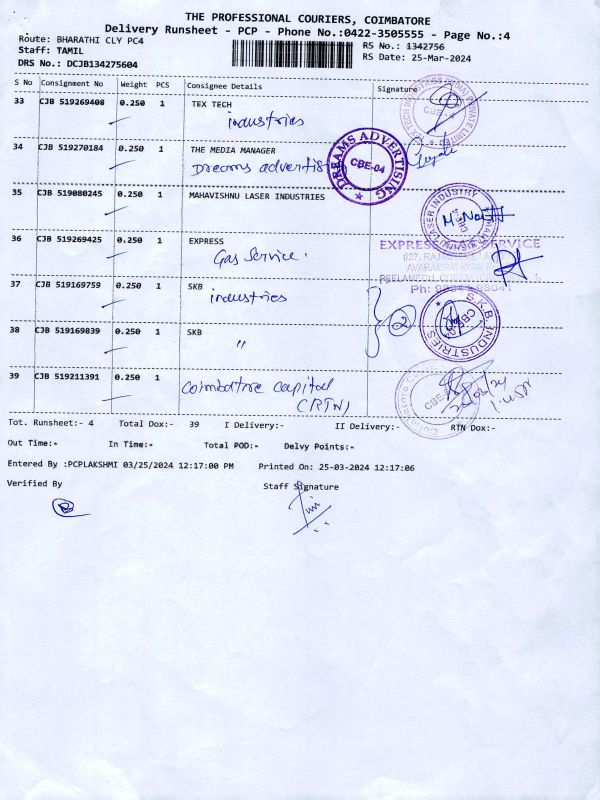 THE PROFESSIONAL COURIERS, COIMBATORE
Delivery Runsheet - PCP - Phone No.:0422-3505555 - Page No.:4
Route: BHARATHI CLY PC4
RS No.: 1342756
Staff: TAMIL
RS Date: 25-Mar-2024
DRS No.: DCJB134275604
S No Consignment No Weight PCS Consignee Details Signature
33 CJB 519269408 0.250 1 TEX TECH
industries
34 CJB 519270184 0.250 1 THE MEDIA MANAGER
Dreams advertis
DREAMS ADVERTISING
CBE-04
35 CJB 519080245 0.250 1 MAHAVISHNU LASER INDUSTRIES
LASER INDUSTRI
36 CJB 519269425 0.250 1 EXPRESS
Gas Service.
EXPRESS GAS SERVICE
37 CJB 519169759 0.250 1 SKB
industries
2
S.K.B INDUSTRIES
38 CJB 519169839 0.250 1 SKB
"
39 CJB 519211391 0.250 1
Coimbatore Capital
(RTN)
Tot. Runsheet:- 4 Total Dox:- 39 I Delivery:- II Delivery:- RTN Dox:-
Out Time:- In Time:- Total POD:- Delvy Points:-
Entered By :PCPLAKSHMI 03/25/2024 12:17:00 PM Printed On: 25-03-2024 12:17:06
Verified By Staff Signature